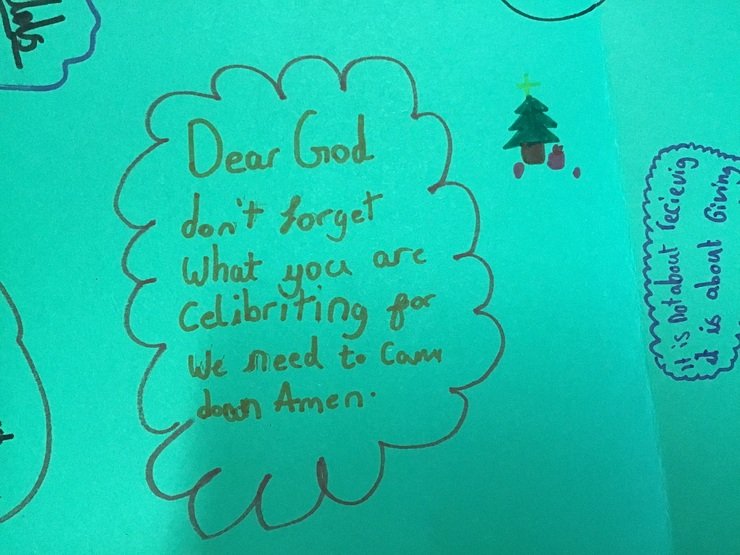 Dear God
don't forget
What you are
celibriting for
We need to Cam
down Amen.
it is not about recievig
it is about Giving